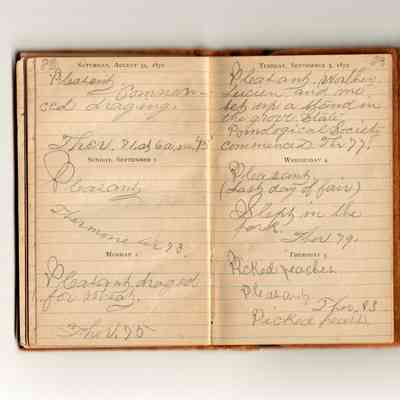 Saturday, August 31, 1872
Pleasant
Commen-
ced draging.
Ther. 71 at 6 a.m. 95
Sunday, September 1
Pleasant
Thermometer 93.
Monday 2
Pleasant draged
for wheat.
Ther. 95
Tuesday, September 3, 1872
Pleasant, Walker
Lucien and me
set up a stand in
the grove State
Pomological Society
commenced Ther 77.
Wednesday 4
Pleasant
(Last day of fair)
Slept in the
Ther 79.
Thursday 5
Picked peaches
Pleasant
Ther. 83
Picked